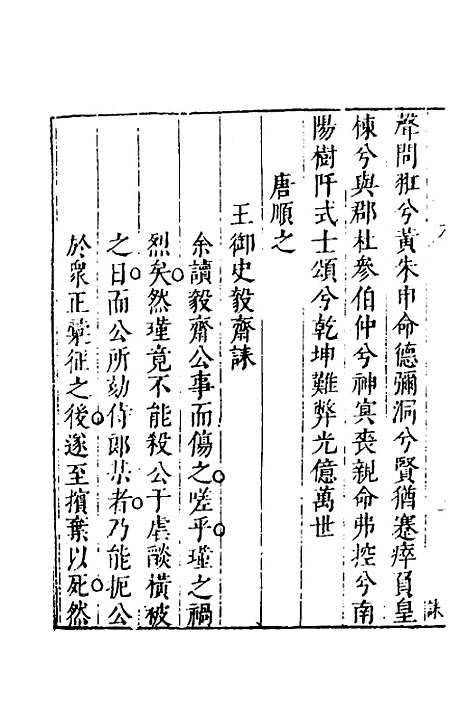 聲問雅兮黃朱申命德彌洞兮賢猶蹇瘁負皇
棟兮與郡杜參伯仲兮神寘喪親命弗控兮南
陽樹阡式士頌兮乾坤難弊光億萬世
唐順之
王御史毅齋誄
余讀毅齋公事而傷之嗟乎瑾之禍
烈矣然瑾竟不能殺公于虐談橫被
之日而公所劾侍郎某者乃能扼公
於衆正彙征之後遂至擯棄以死然
誄